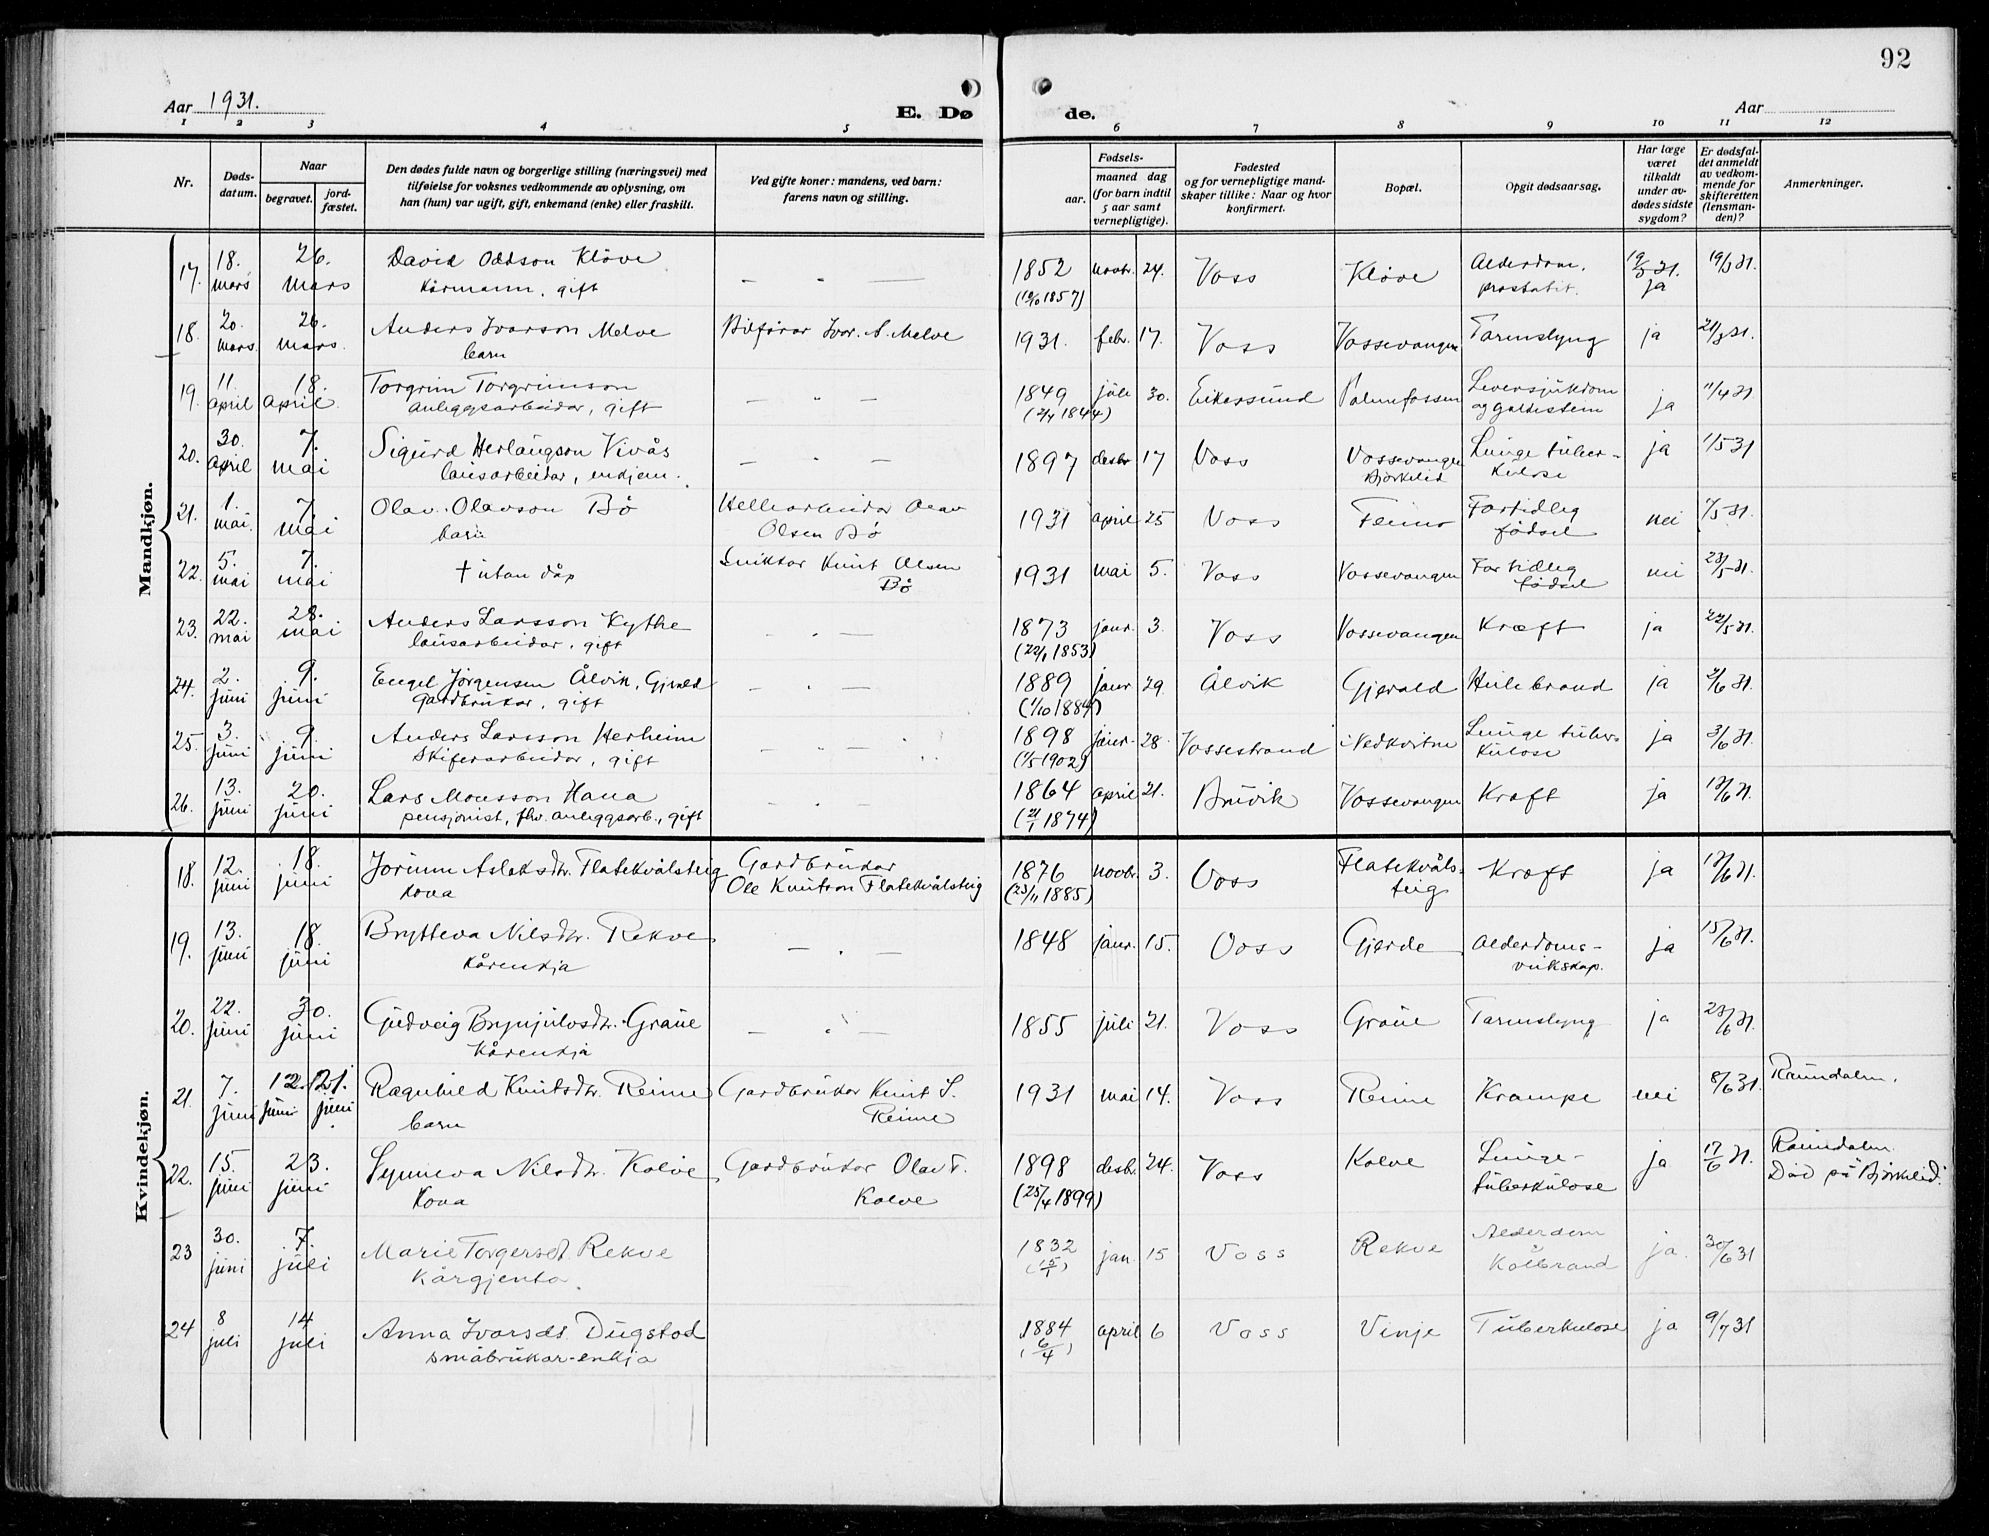 92
Aar 1931.
E. Dø de.
Aar
1 2 3 4 5 6 7 8 9 10 11 12
Nr.
Døds-datum.
Naar
begravet.
jord-fæstet.
Den dødes fulde navn og borgerlige stilling (næringsvei) med
tilføielse for voksnes vedkommende av oplysning, om
han (hun) var ugift, gift, enkemand (enke) eller fraskilt.
Ved gifte koner: mandens, ved barn:
farens navn og stilling.
Fødsels-
aar.
maaned dag
(for barn indtil
5 aar samt
vernepligtige).
Fødested
og for vernepligtige mand-
skaper tillike: Naar og hvor
konfirmert.
Bopæl.
Opgit dødsaarsag.
Har læge
været
tilkaldt
under av-
dødes sidste
sygdom?
Er dødsfal-
det anmeldt
av vedkom-
mende for
skifteretten
(lensman-
den)?
Anmerkninger.
Mandkjøn.
17. 18. mars 26. mars David Oddson Kløve 1852 novbr. 24. Voss Kløve Alderdom, 19/3 31. 19/3 31.
kårmann, gift prostatit. ja
18. 20. mars. 26. mars. Anders Ivarson Melve Bilførar Ivar A. Melve 1931. febr. 17. Voss Vossevangen Tarmslyng ja 21/3 31.
barn
19. 11. april 18. april Torgrim Torgrimson 1849 juli 30. Eikersund Palmafossen Leversjukdom ja 11/4 31
anleggsarbeidar, gift (2/4 1844) og gallestein
20. 30. april 7. mai Sigurd Herlaugson Vivås 1897 desbr 17 Voss Vossevangen Lunge tuber- ja 1/5 31
lausarbeidar, enkjem. Bjørkelid kulose
21. 1. mai. 7. mai Olav Olavson Bø Hellearbeidar Olav 1931 april 25 Voss Fortidleg nei 7/5 31.
barn Olsen Bø fødsel
22. 5. mai 7. mai † utan dåp Snikkar Knut Olsen 1931 mai 5. Voss Vossevangen Fortidleg nei 23/5 31.
Bø fødsel
23. 22. mai 28. mai Anders Larsson Kythe 1873 janr. 3. Voss Vossevangen Kræft ja 22/5 31.
lausarbeidar, gift (22/1 1853)
24. 2. juni 9. juni Engel Jørgensen Ålvik, Gjerald 1889 janr 29. Ålvik Gjerald ja 2/6 31.
gardbrukar, gift (1/10 1884)
25. 3. juni 9. juni Anders Larsson Herheim 1898 janr. 28. Vossestrand Nedkvitne Lunge tuber- ja 3/6 31.
skiferarbeidar, gift (1/5 1902) kulose
26. 13. juni 20. juni Lars Monsson Hana 1864 april 21. Bruvik Vossevangen Kræft ja 13/6 31.
pensjonist, fhv. anleggsarb., gift (21/1 1874)
Kvindekjøn.
18. 12. juni 18. juni Jorunn Aslaksdtr. Flatekvålsteig Gardbrukar 1876 novbr. 3. Voss Flatekvåls- Kræft ja 13/6 31.
kona Ole Knutson Flatekvålsteig (23/11 1885) teig
19. 13. juni 18. juni Brytteva Nilsdtr. Rekve 1848 janr. 15. Voss Gjerde Alderdoms- ja 15/6 31.
kårenkja veikskap.
20. 22. juni 30. juni Gudveig Brynjulvsdtr. Graue 1855 juli 21. Voss Graue Tarmslyng ja 23/6 31.
kårenkja
21. 7. juni 12. juni 21. juni Ragnhild Knutsdtr. Reime Gardbrukar Knut S. 1931 mai 14. Voss Reime Krampe nei 8/6 31. Raundalen.
barn Reime
22. 15. juni 23. juni Synneva Nilsdtr. Kolve Gardbrukar Olav T. 1898 desbr. 24. Voss Kolve Lunge- ja 17/6 31. Raundalen.
kona Kolve (25/4 1899) tuberkulose Død på Bjørkelid.
23 30. juni 7. juli Marie Torgersd. Rekve 1832 jan. 15 Voss Rekve Alderdom ja. 30/6 31
kårgjenta (15/1) Kolbrand
24 8 juli 14 juli Anna Ivarsds. Dugstad 1884 april 6 Voss Vinje Tuberkulose ja 9/7 31
småbrukar-enkja (6/4)